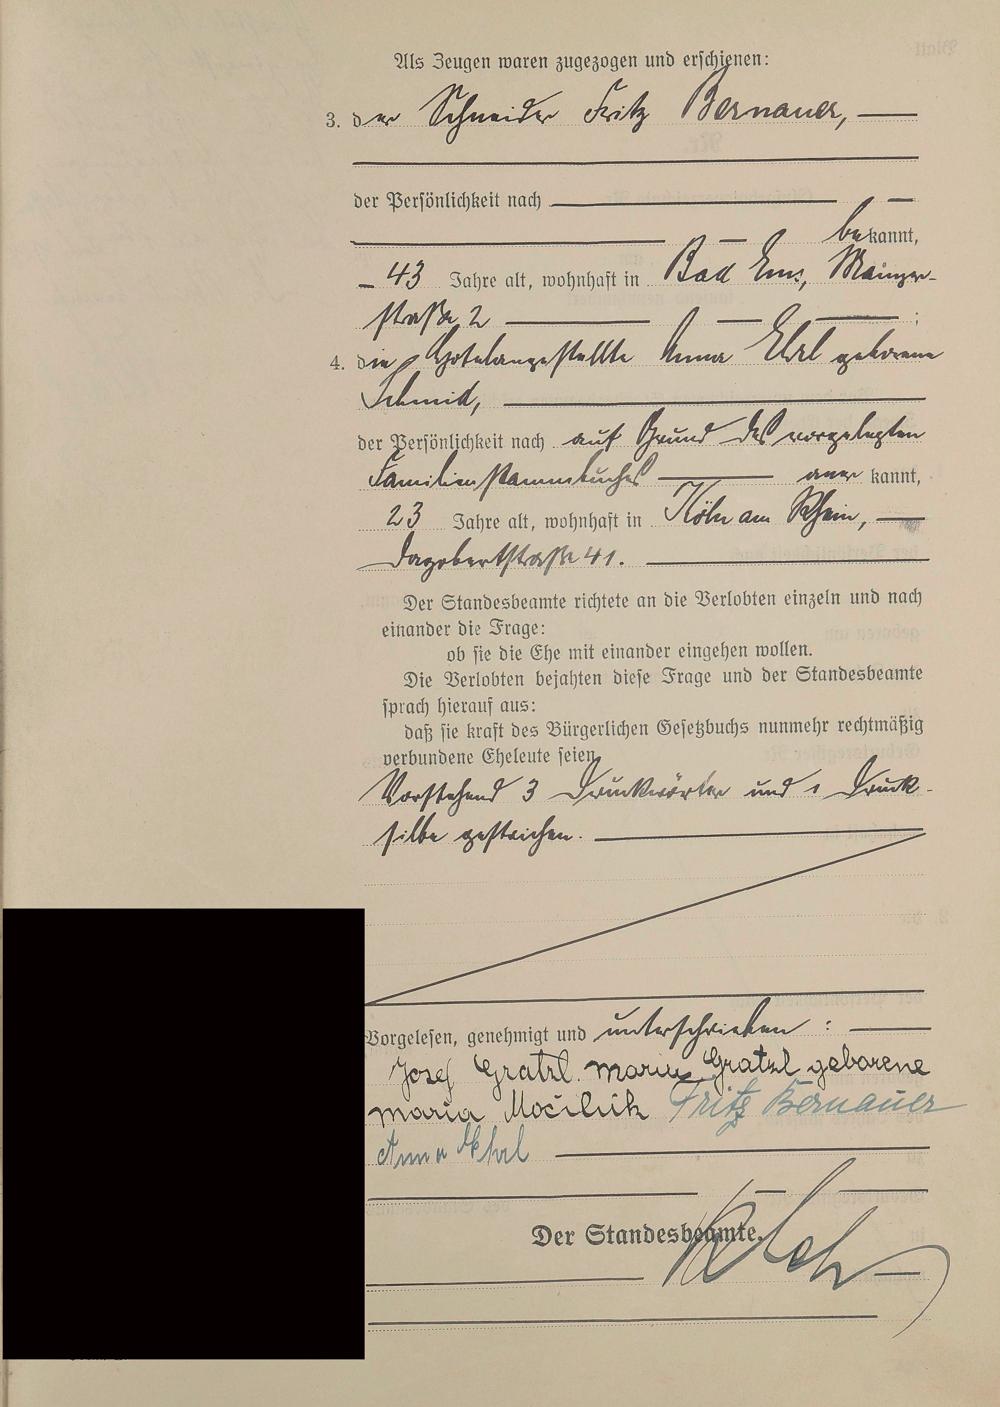 Als Zeugen waren zugezogen und erschienen:
3. der Schneider Fritz Bernauer,
der Persönlichkeit nach
bekannt,
43 Jahre alt, wohnhaft in Bad Ems, Mainzer-
straße 2 ;
4. die Hotelangestellte Anna geborene
Schmid,
der Persönlichkeit nach auf Grund des vorgelegten
Familienstammbuches anerkannt,
23 Jahre alt, wohnhaft in Köln am Rhein,
Dagobertstraße 41.
Der Standesbeamte richtete an die Verlobten einzeln und nach
einander die Frage:
ob sie die Ehe mit einander eingehen wollen.
Die Verlobten bejahten diese Frage und der Standesbeamte
sprach hierauf aus:
daß sie kraft des Bürgerlichen Gesetzbuchs nunmehr rechtmäßig
verbundene Eheleute seien.
Vorstehend 3 Druckwörter und 1 Druck-
silbe gestrichen.
Vorgelesen, genehmigt und unterschrieben :
Josef Gratzl. Maria Gratzl geborene
Maria Močilnik Fritz Bernauer
Anna
Der Standesbeamte.